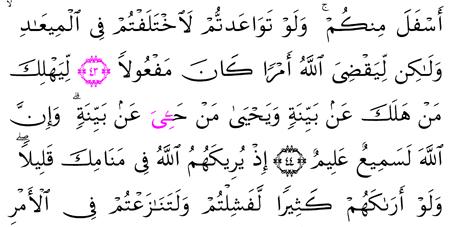 أَسْفَلَ مِنكُمْ ۚ وَلَوْ تَوَاعَدتُّمْ لَٱخْتَلَفْتُمْ فِى ٱلْمِيعَـٰدِ ۙ
وَلَـٰكِن لِّيَقْضِىَ ٱللَّهُ أَمْرًا كَانَ مَفْعُولًا ﴿٤٣﴾ لِّيَهْلِكَ
مَنْ هَلَكَ عَنۢ بَيِّنَةٍ وَيَحْيَىٰ مَنْ حَيِىَ عَنۢ بَيِّنَةٍ ۗ وَإِنَّ
ٱللَّهَ لَسَمِيعٌ عَلِيمٌ ﴿٤٤﴾ إِذْ يُرِيكَهُمُ ٱللَّهُ فِى مَنَامِكَ قَلِيلًا ۖ
وَلَوْ أَرَىٰكَهُمْ كَثِيرًا لَّفَشِلْتُمْ وَلَتَنَـٰزَعْتُمْ فِى ٱلْأَمْرِ